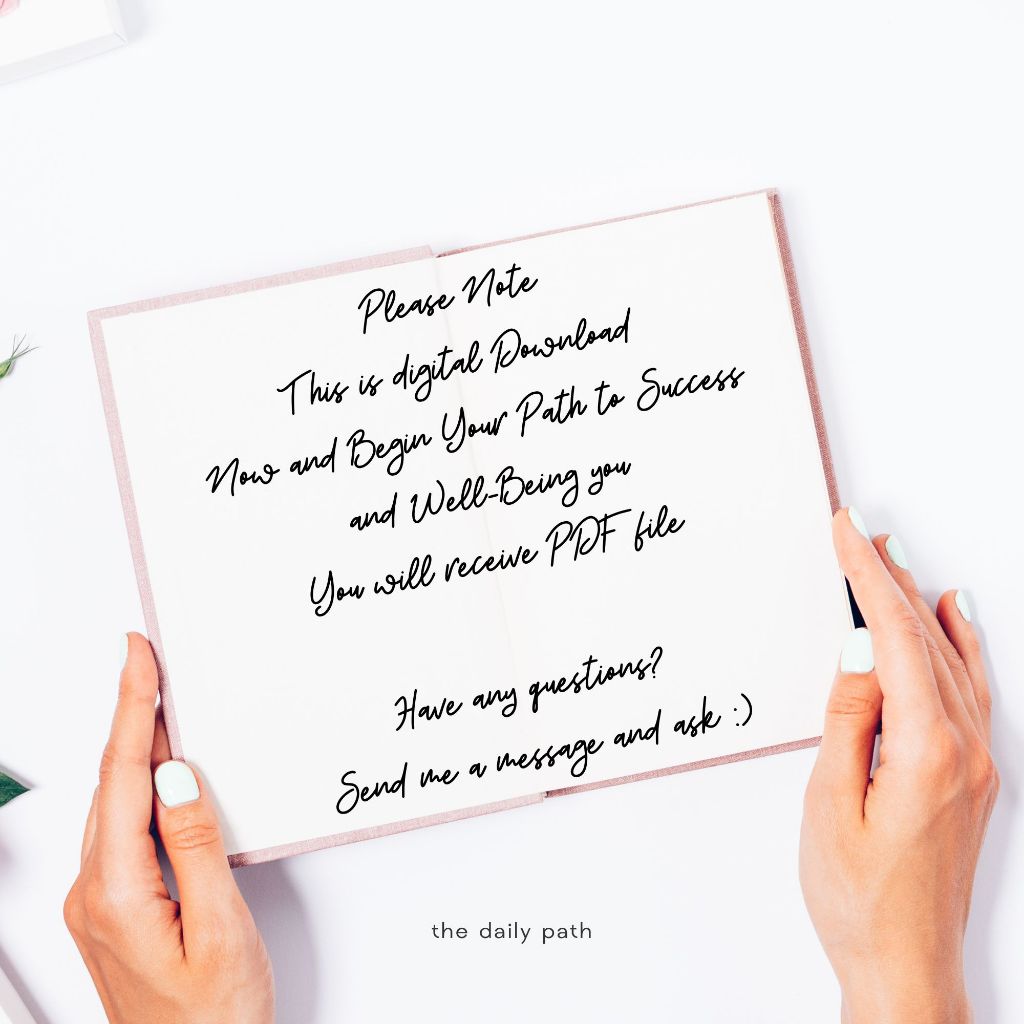 Please Note
This is digital Download
Now and Begin Your Path to Success
and Well-Being you
You will receive PDF file
Have any questions?
Send me a message and ask :)
the daily path